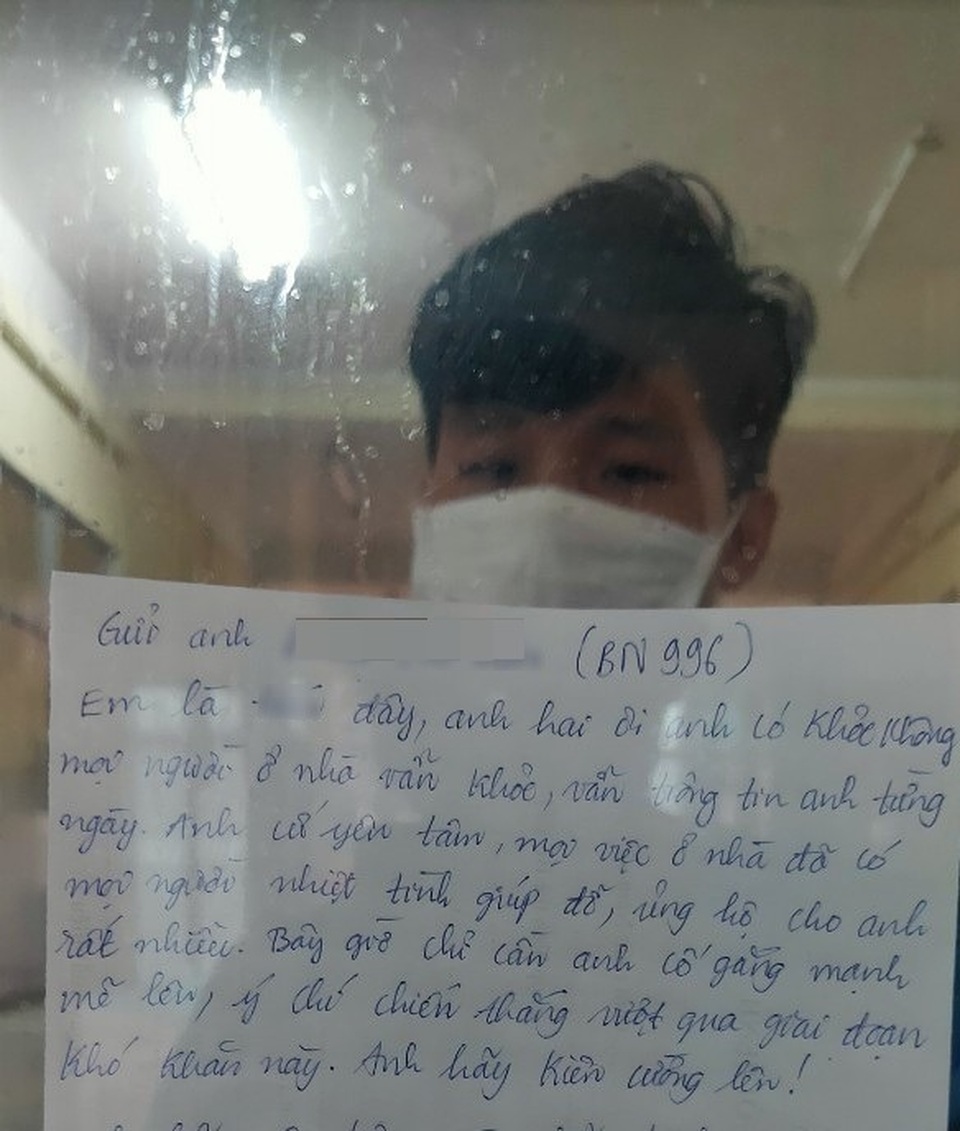 Gửi anh (BN 996)
Em là đây, anh hai ơi anh có khỏe không
mọi người ở nhà vẫn khỏe, vẫn trông tin anh từng
ngày. Anh cứ yên tâm, mọi việc ở nhà đã có
mọi người nhiệt tình giúp đỡ, ủng hộ cho anh
rất nhiều. Bây giờ chỉ cần anh cố gắng mạnh
mẽ lên, ý chí chiến thắng vượt qua giai đoạn
khó khăn này. Anh hãy kiên cường lên!